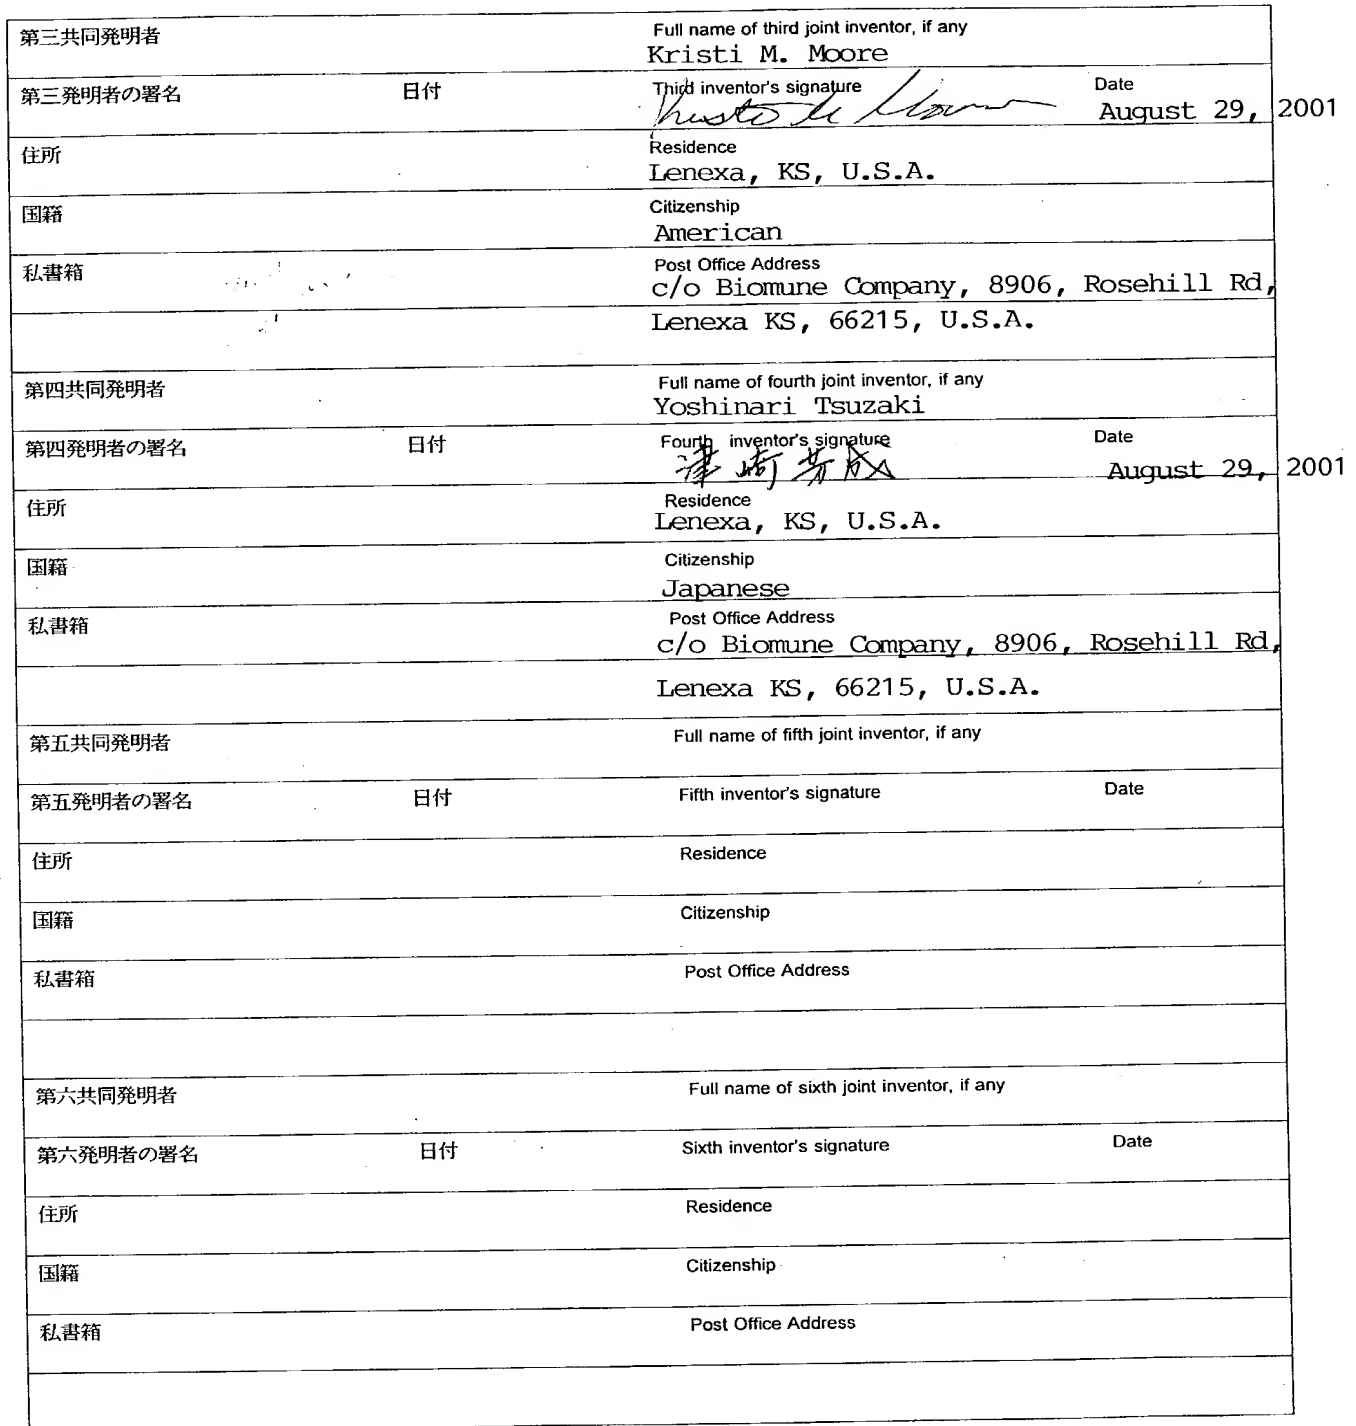 第三共同発明者 Full name of third joint inventor, if any
Kristi M. Moore
第三発明者の署名 日付 Third inventor's signature Date
August 29, 2001
住所 Residence
Lenexa, KS, U.S.A.
国籍 Citizenship
American
私書箱 Post Office Address
c/o Biomune Company, 8906, Rosehill Rd,
Lenexa KS, 66215, U.S.A.
第四共同発明者 Full name of fourth joint inventor, if any
Yoshinari Tsuzaki
第四発明者の署名 日付 Fourth inventor's signature Date
津崎芳成 August 29, 2001
住所 Residence
Lenexa, KS, U.S.A.
国籍 Citizenship
Japanese
私書箱 Post Office Address
c/o Biomune Company, 8906, Rosehill Rd,
Lenexa KS, 66215, U.S.A.
第五共同発明者 Full name of fifth joint inventor, if any
第五発明者の署名 日付 Fifth inventor's signature Date
住所 Residence
国籍 Citizenship
私書箱 Post Office Address
第六共同発明者 Full name of sixth joint inventor, if any
第六発明者の署名 日付 Sixth inventor's signature Date
住所 Residence
国籍 Citizenship
私書箱 Post Office Address